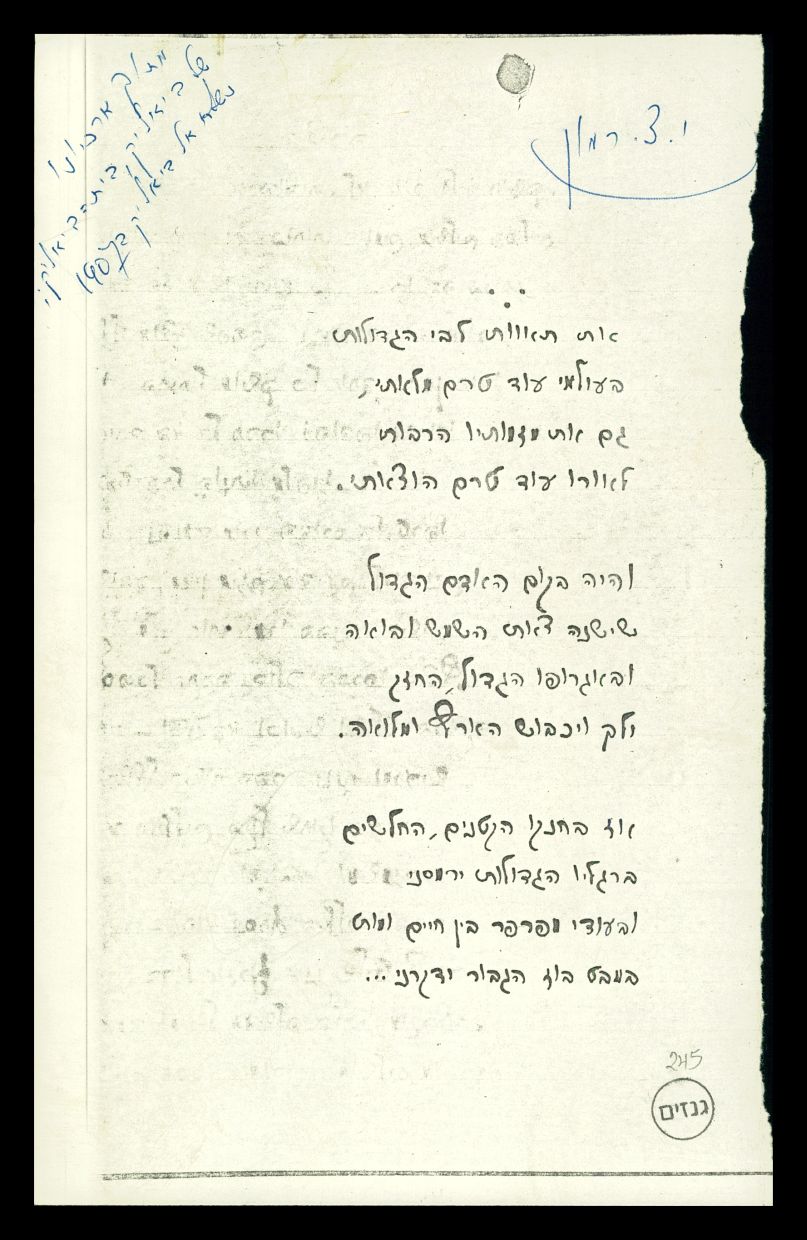 י. צ. רמון
מתוך ארכיונו
של ביאליק בית ביאליק.
נשלח אל ביאליק ב 1907
את תאוות לבי הגדולות
בעולמי עוד טרם מלאתי,
גם את מזמותיו הרבות
לאורו עוד טרם הוצאתי.
והיה בקום האדם הגדול
שישנה צאת השמש ובואה
ובאגרופו הגדול, החזק
ילך ויכבוש הארץ ומלואה.
אז בחנקו הקטנים, החלשים
ברגליו הגדולות ירמסני
ובעודי מפרפר בין חיים ומות
במבט בוז הגבור ידקרני...
245
גנזים